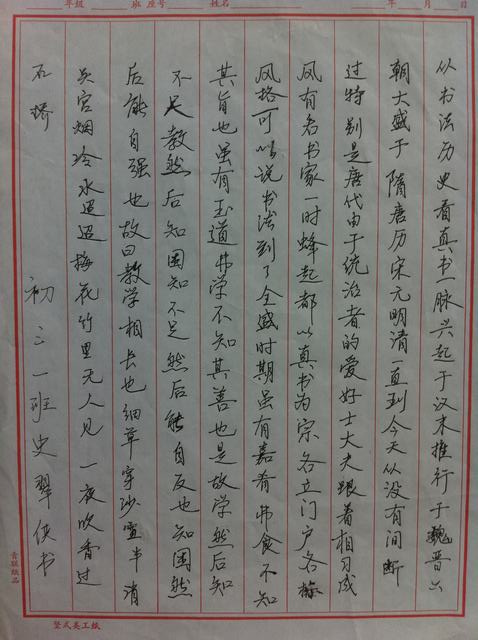 年级 班 座号 姓名 年 月 日
从书法历史看真书一脉兴起于汉末推行于魏晋六
朝大盛于隋唐历宋元明清一直到今天从没有间断
过特别是唐代由于统治者的爱好士大夫跟着相习成
风有名书家一时蜂起都以真书为宗各立门户各
风格可以说书法到了全盛时期虽有嘉肴弗食不知
其旨也虽有至道弗学不知其善也是故学然后知
不足教然后知困知不足然后能自反也知困然
后能自强也故曰教学相长也细草穿沙雪半消
吴宫烟冷水迢迢梅花竹里无人见一夜吹香过
石桥
初三一班史翠侠书
青联纸品
竖式美工纸